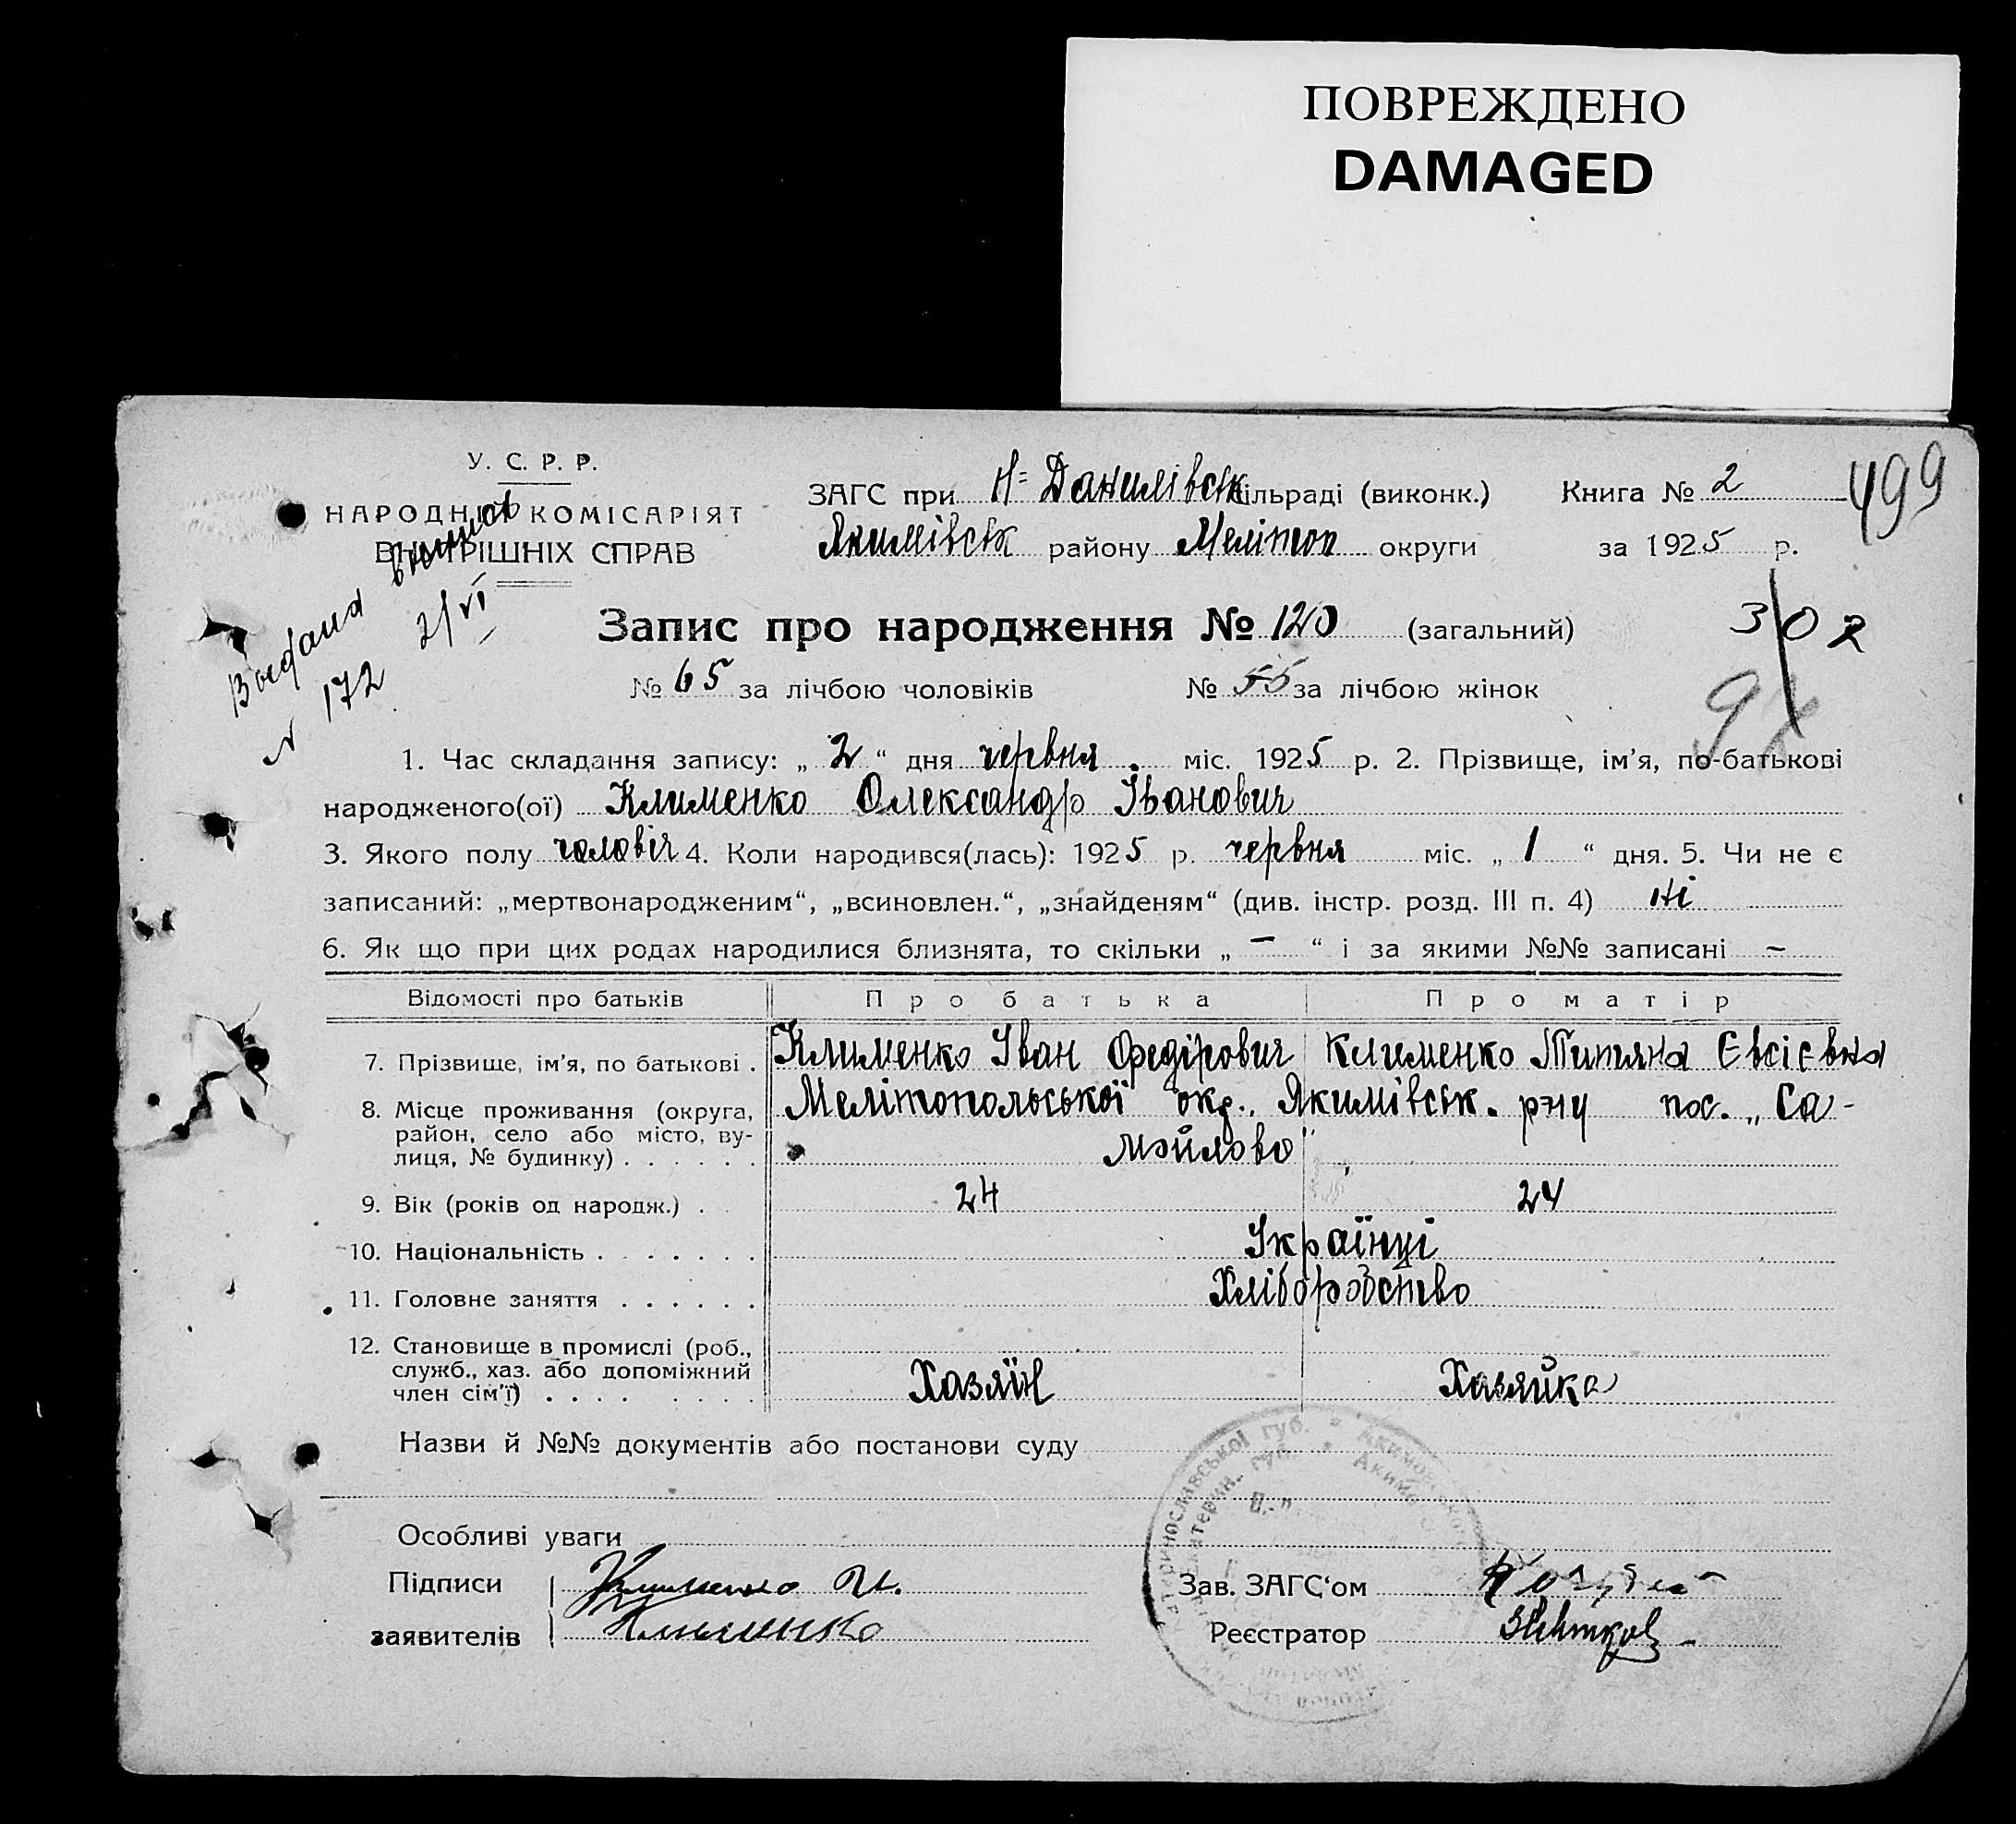 ПОВРЕЖДЕНО
DAMAGED
У. С. Р. Р.
НАРОДНІЙ КОМІСАРІЯТ
ВНУТРІШНІХ СПРАВ
ЗАГС при Н-Данилівськ сільраді (виконк.) Книга № 2
499
Якимівськ району Меліtоп округи за 1925 р.
Видана выпись
№ 172 2/VI
Запис про народження № 120 (загальний)
302
№ 65 за лічбою чоловіків № 55 за лічбою жінок
1. Час складання запису: „ 2 “ дня червня міс. 1925 р. 2. Прізвище, ім’я, по-батькові
народженого(ої) Клименко Олександр Іванович
3. Якого полу чоловіч 4. Коли народився(лась): 1925 р. червня міс. „ 1 “ дня. 5. Чи не є
записаний: „мертвонародженим“, „всиновлен.“, „знайденям“ (див. інстр. розд. III п. 4) Ні
6. Як що при цих родах народилися близнята, то скільки „ – “ і за якими №№ записані –
Відомості про батьків Про батька Про матір
7. Прізвище, ім’я, по батькові . Клименко Іван Федірович Клименко Титяна Євсієвна
8. Місце проживання (округа, Мелітопольської окр., Якимівськ. р-ну пос. „Са-
район, село або місто, ву-
лиця, № будинку) . . . . . . мойлово"
9. Вік (років од народж.) . 24 24
10. Національність . . . . . . . Українці
11. Головне заняття . . . . . . Хліборобство
12. Становище в промислі (роб.,
служб., хаз. або допоміжний
член сім’ї) . . . . . . . . Хазяїн Хазяйка
Назви й №№ документів або постанови суду
Особливі уваги
Підписи Клименко И.
заявителів Клименко
Зав. ЗАГС‘ом
Реєстратор